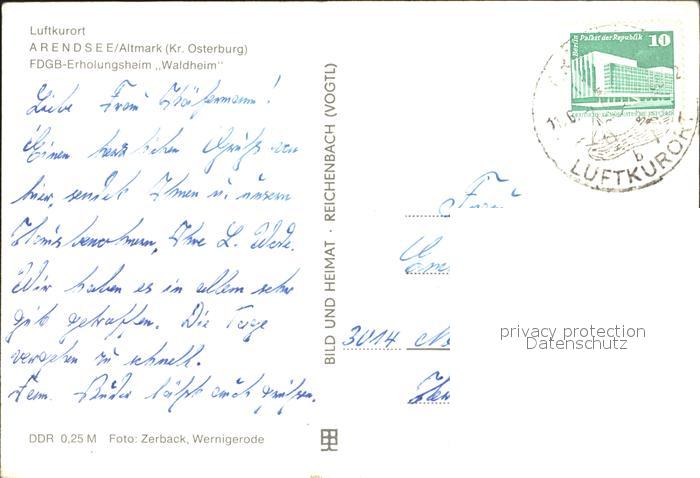 Luftkurort
ARENDSEE/Altmark (Kr. Osterburg)
FDGB-Erholungsheim „Waldheim"
Liebe Frau
Einen herzlichen Gruß von
hier, sendet Ihnen u. unsern
Hausbewohnern, Ihre L.
Wir haben es in allem sehr
gut getroffen. Die Tage
vergehen zu schnell.
Fam. läßt auch grüßen.
DDR 0,25 M Foto: Zerback, Wernigerode
BILD UND HEIMAT · REICHENBACH (VOGTL)
Berlin Palast der Republik
10
LUFTKURORT
Frau
3014
privacy protection
Datenschutz